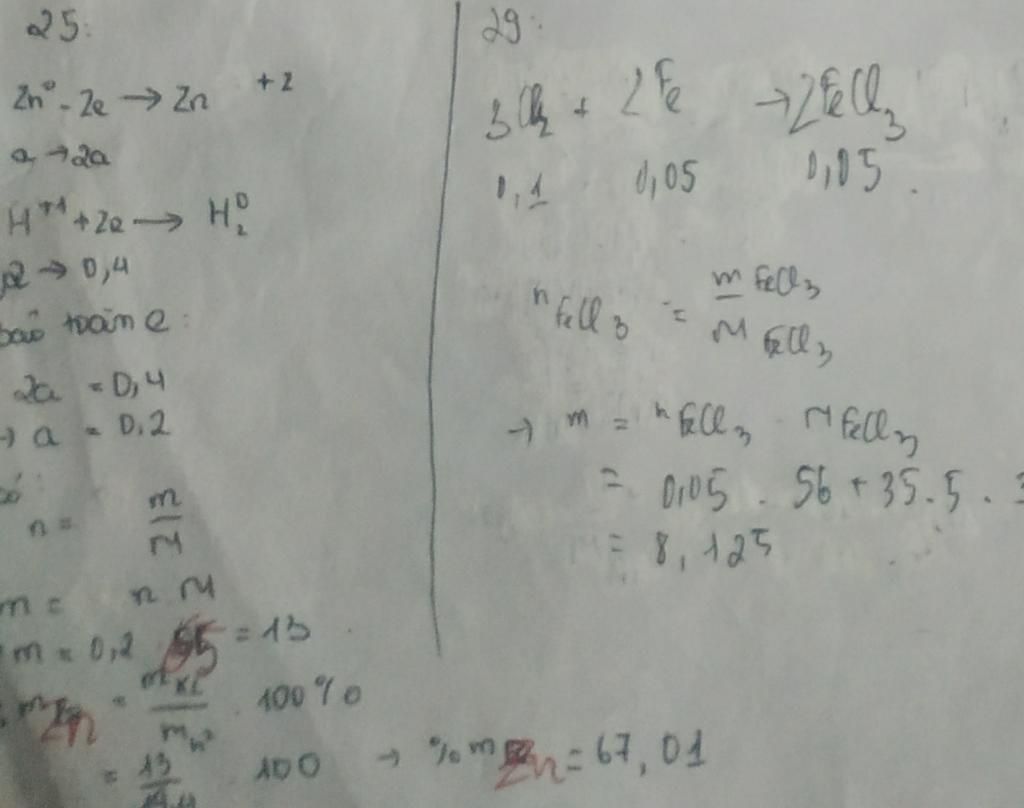 25:
Zn⁰ - 2e → Zn +2
a → 2a
H⁺¹ + 2e → H₂⁰
→ 0,4
toàn e:
2a = 0,4
→ a = 0,2
n = m/M
m = n M
m = 0,2 65 = 13
Zn = 100%
= 13 100 → %m Zn = 67,01
29:
3Cl₂ + 2Fe → 2FeCl₃
0,1 0,05 0,05.
nFeCl₃ = mFeCl₃/MFeCl₃
→ m = nFeCl₃ . MFeCl₃
= 0,05 . 56 + 35.5 . 3
= 8,125